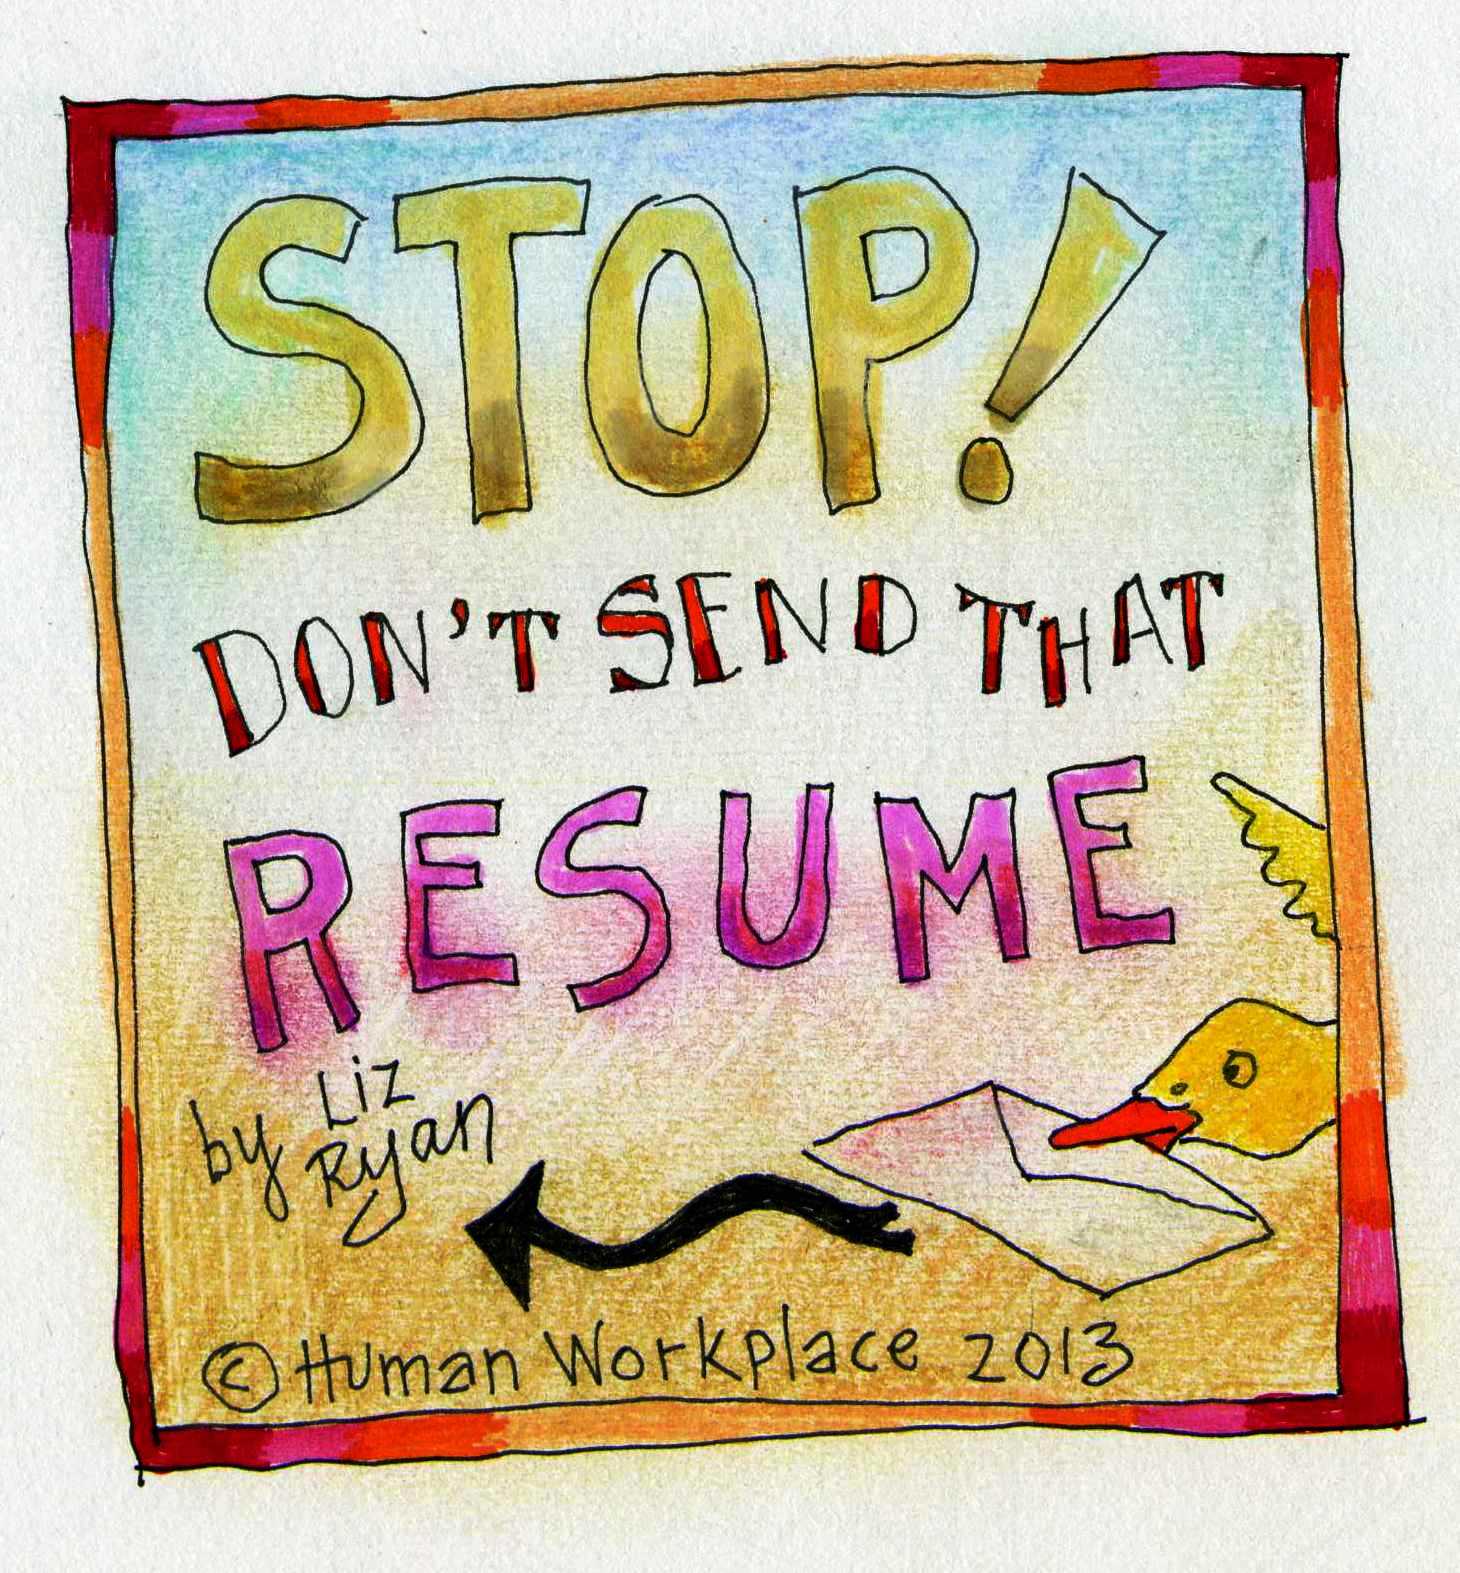 STOP!
DON'T SEND THAT
RESUME
by Liz
Ryan
© Human Workplace 2013